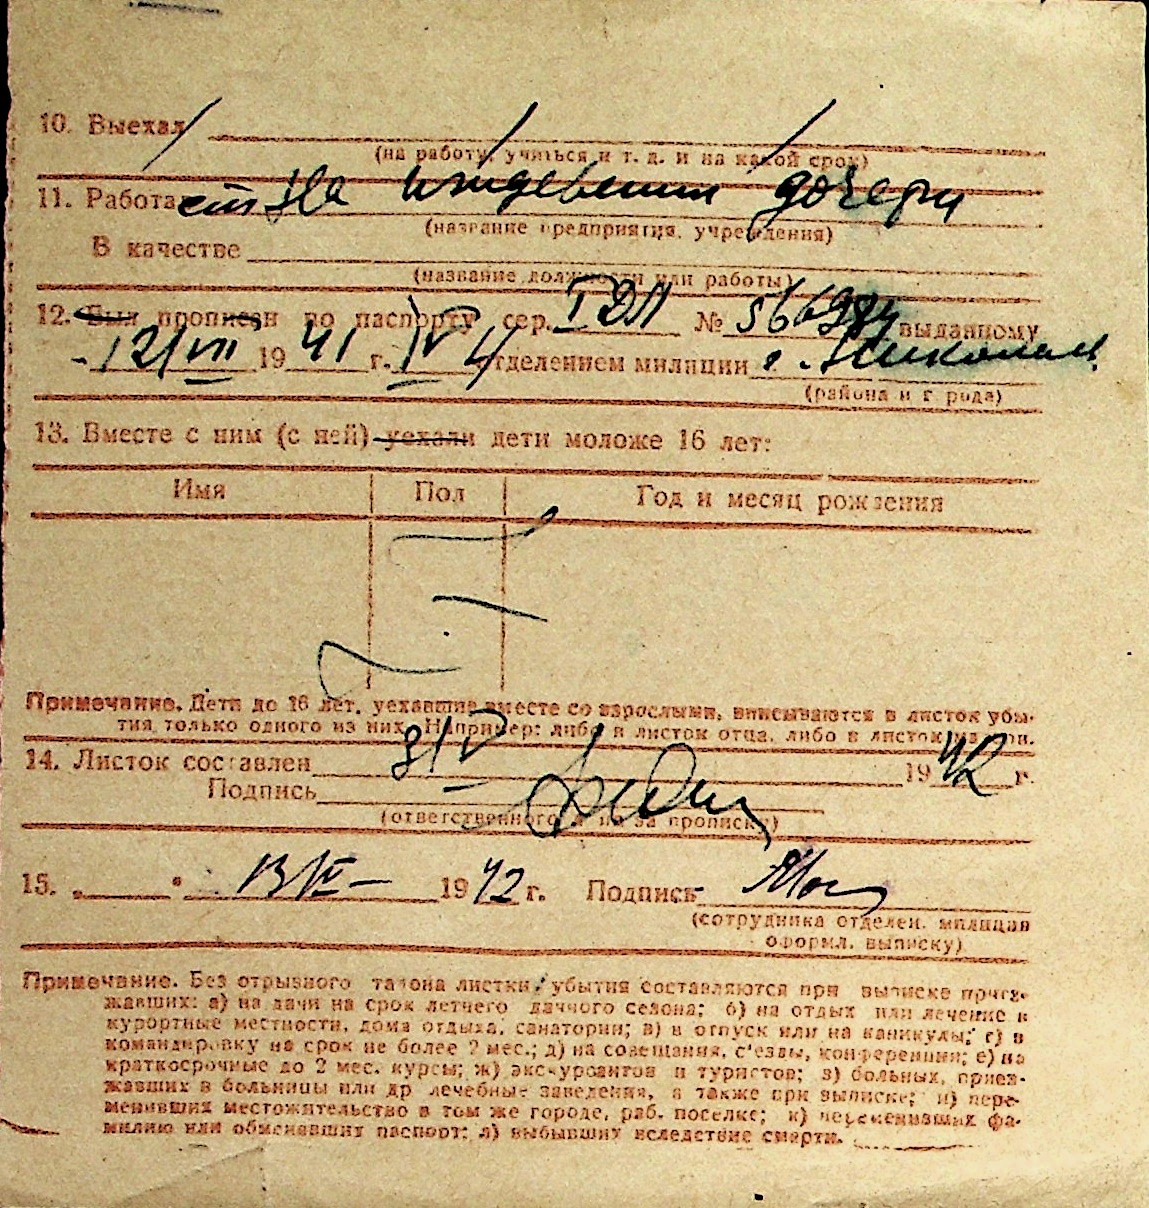 10. Выехал
(на работу, учиться и т. д. и на какой срок)
11. Работа ет на иждевении дочери
(название предприятия, учреждения)
В качестве
(название должности или работы)
12. Был прописан по паспорту сер. № выданному
12/VII 1941 г. IV отделением милиции г.
(района и города)
13. Вместе с ним (с ней) уехали дети моложе 16 лет:
Имя Пол Год и месяц рождения
Примечание. Дети до 16 лет, уехавшие вместе со взрослыми, вписываются в листок убы-
тия только одного из них. Например: либо в листок отца, либо в листок
14. Листок составлен 1942 г.
Подпись
(ответственного за прописку)
15. „ “ 1942 г. Подпись
(сотрудника отделен. милиции
оформл. выписку)
Примечание. Без отрывного талона листки убытия составляются при выписке приез-
жавших: а) на дачи на срок летнего дачного сезона; б) на отдых или лечение в
курортные местности, дома отдыха, санатории; в) в отпуск или на каникулы; г) в
командировку на срок не более 2 мес.; д) на совещания, с'езды, конференции; е) на
краткосрочные до 2 мес. курсы; ж) экскурсантов и туристов; з) больных, приез-
жавших в больницы или др лечебные заведения, а также при выписке; и) пере-
менивших местожительство в том же городе, раб. поселке; к) переменивших фа-
милию или обменявших паспорт; л) выбывших вследствие смерти.